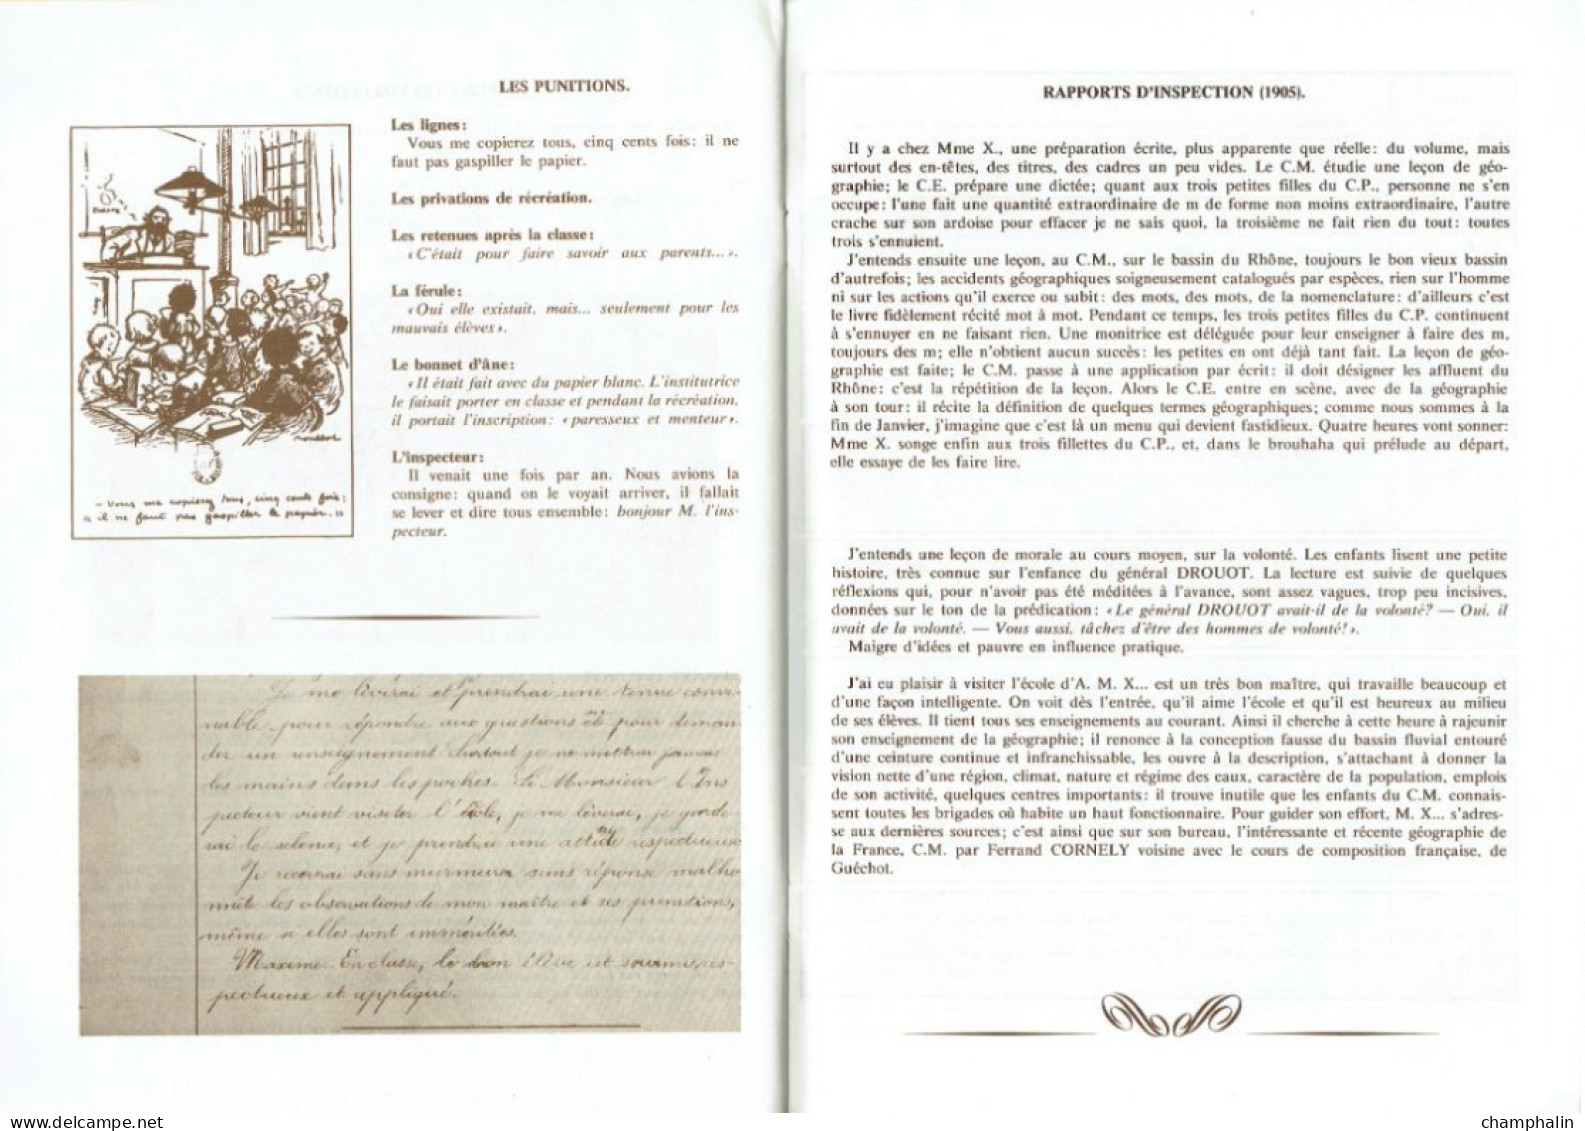 LES PUNITIONS.
Les lignes :
Vous me copierez tous, cinq cents fois : il ne
faut pas gaspiller le papier.
Les privations de récréation.
Les retenues après la classe :
« C'était pour faire savoir aux parents... ».
La férule :
« Oui elle existait, mais... seulement pour les
mauvais élèves ».
Le bonnet d'âne :
« Il était fait avec du papier blanc. L'institutrice
le faisait porter en classe et pendant la récréation,
il portait l'inscription : « paresseux et menteur ».
L'inspecteur :
Il venait une fois par an. Nous avions la
consigne : quand on le voyait arriver, il fallait
se lever et dire tous ensemble : bonjour M. l'ins-
pecteur.
- Vous me copierez tous, cinq cents fois :
« il ne faut pas gaspiller le papier. »
Je me lèverai et prendrai une tenue conve-
nable pour répondre aux questions où pour deman-
der un enseignement Surtout je ne mettrai jamais
les mains dans les poches. Si Monsieur l'Ins
pecteur vient visiter l'école, je me lèverai, je garde-
rai le silence, et je prendrai une attitude respectueuse
Je recevrai sans murmurer sans réponse malho
nnête les observations de mon maître et ses punitions,
même si elles sont imméritées.
Maxime. En classe, le bon élève est soumis, res-
pectueux et appliqué.
RAPPORTS D'INSPECTION (1905).
Il y a chez Mme X., une préparation écrite, plus apparente que réelle : du volume, mais
surtout des en-têtes, des titres, des cadres un peu vides. Le C.M. étudie une leçon de géo-
graphie; le C.E. prépare une dictée; quant aux trois petites filles du C.P., personne ne s'en
occupe : l'une fait une quantité extraordinaire de m de forme non moins extraordinaire, l'autre
crache sur son ardoise pour effacer je ne sais quoi, la troisième ne fait rien du tout : toutes
trois s'ennuient.
J'entends ensuite une leçon, au C.M., sur le bassin du Rhône, toujours le bon vieux bassin
d'autrefois; les accidents géographiques soigneusement catalogués par espèces, rien sur l'homme
ni sur les actions qu'il exerce ou subit : des mots, des mots, de la nomenclature : d'ailleurs c'est
le livre fidèlement récité mot à mot. Pendant ce temps, les trois petites filles du C.P. continuent
à s'ennuyer en ne faisant rien. Une monitrice est déléguée pour leur enseigner à faire des m,
toujours des m; elle n'obtient aucun succès : les petites en ont déjà tant fait. La leçon de géo-
graphie est faite; le C.M. passe à une application par écrit : il doit désigner les affluent du
Rhône : c'est la répétition de la leçon. Alors le C.E. entre en scène, avec de la géographie
à son tour : il récite la définition de quelques termes géographiques; comme nous sommes à la
fin de Janvier, j'imagine que c'est là un menu qui devient fastidieux. Quatre heures vont sonner:
Mme X. songe enfin aux trois fillettes du C.P., et, dans le brouhaha qui prélude au départ,
elle essaye de les faire lire.
J'entends une leçon de morale au cours moyen, sur la volonté. Les enfants lisent une petite
histoire, très connue sur l'enfance du général DROUOT. La lecture est suivie de quelques
réflexions qui, pour n'avoir pas été méditées à l'avance, sont assez vagues, trop peu incisives,
données sur le ton de la prédication : « Le général DROUOT avait-il de la volonté? — Oui, il
avait de la volonté. — Vous aussi, tâchez d'être des hommes de volonté! ».
Maigre d'idées et pauvre en influence pratique.
J'ai eu plaisir à visiter l'école d'A. M. X... est un très bon maître, qui travaille beaucoup et
d'une façon intelligente. On voit dès l'entrée, qu'il aime l'école et qu'il est heureux au milieu
de ses élèves. Il tient tous ses enseignements au courant. Ainsi il cherche à cette heure à rajeunir
son enseignement de la géographie; il renonce à la conception fausse du bassin fluvial entouré
d'une ceinture continue et infranchissable, les ouvre à la description, s'attachant à donner la
vision nette d'une région, climat, nature et régime des eaux, caractère de la population, emplois
de son activité, quelques centres importants : il trouve inutile que les enfants du C.M. connais-
sent toutes les brigades où habite un haut fonctionnaire. Pour guider son effort, M. X... s'adres-
se aux dernières sources; c'est ainsi que sur son bureau, l'intéressante et récente géographie de
la France, C.M. par Ferrand CORNELY voisine avec le cours de composition française, de
Guéchot.
www.delcampe.net
champhalin